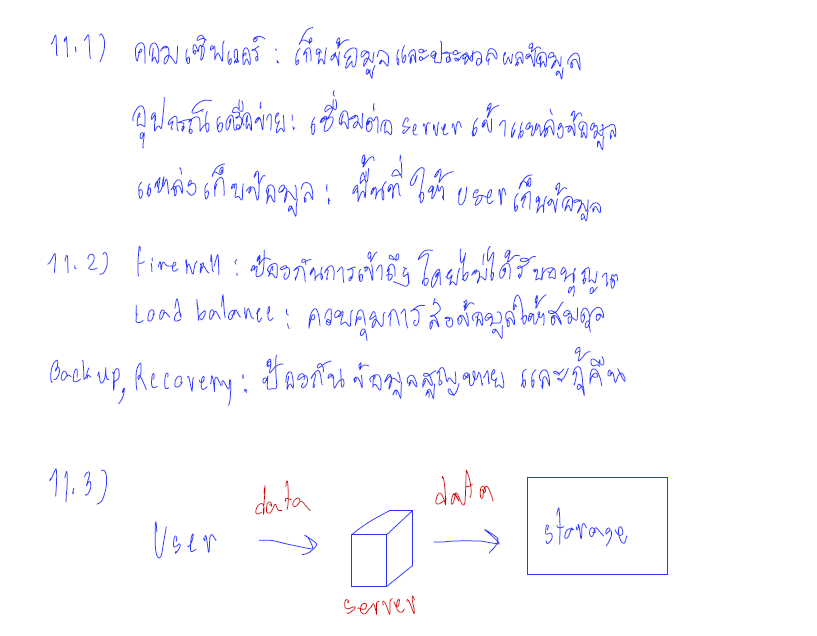 11.1) คอมเซิฟเวอร์ : เก็บข้อมูลและประมวลผลข้อมูล
อุปกรณ์เครือข่าย : เชื่อมต่อ server เข้าแหล่งข้อมูล
แหล่งเก็บข้อมูล : พื้นที่ ให้ user เก็บข้อมูล
11.2) firewall : ป้องกันการเข้าถึง โดยไม่ได้รับอนุญาต
Load balance : ควบคุมการส่งข้อมูลให้สมดุล
Backup, Recovery : ป้องกัน ข้อมูลสูญหาย และกู้คืน
11.3)
data data
User storage
server